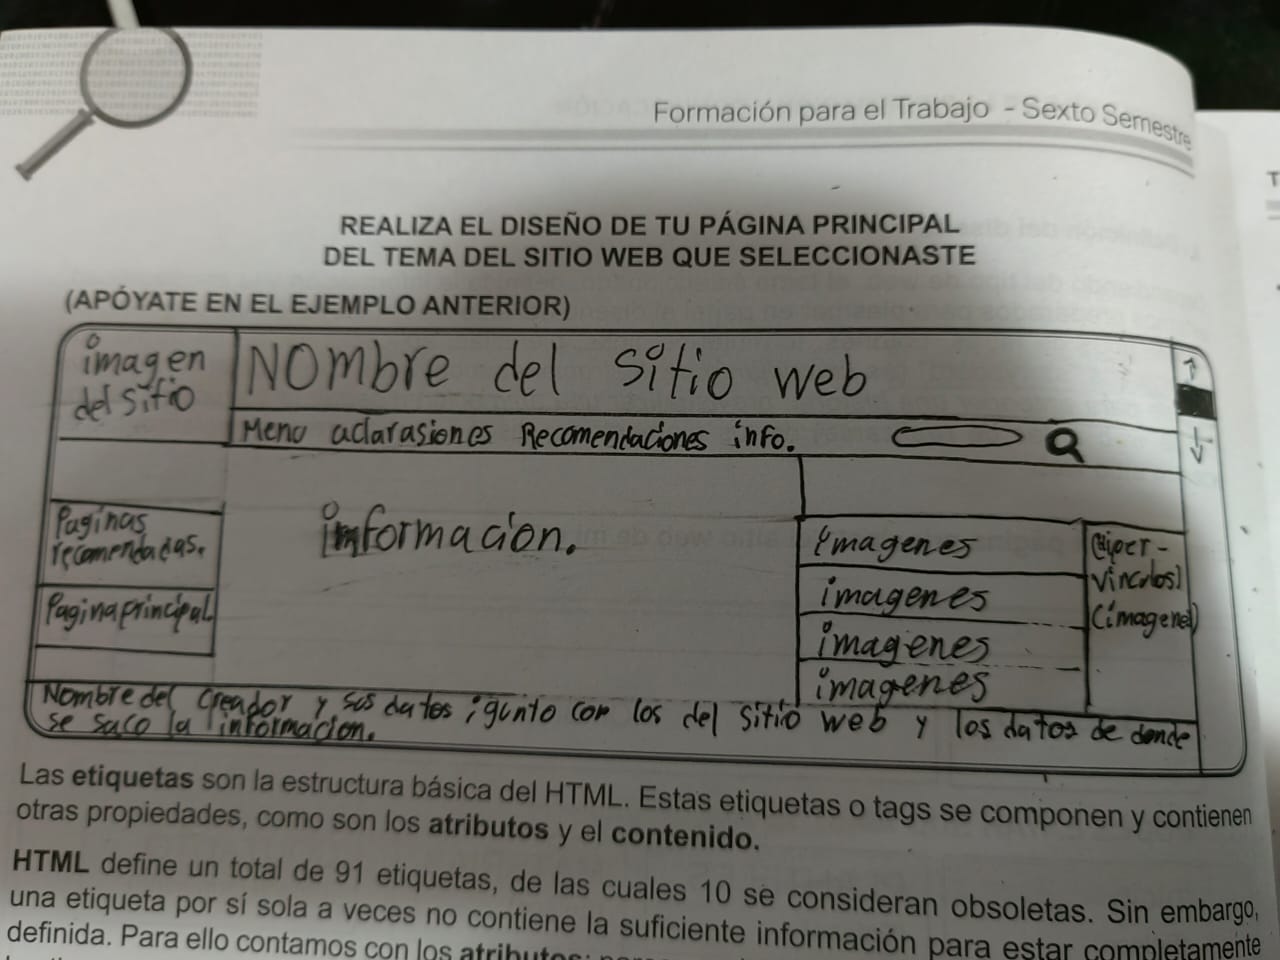 Formación para el Trabajo - Sexto Semestre
REALIZA EL DISEÑO DE TU PÁGINA PRINCIPAL
DEL TEMA DEL SITIO WEB QUE SELECCIONASTE
(APÓYATE EN EL EJEMPLO ANTERIOR)
imagen
del sitio
NOMbre del sitio web
Menu aclarasiones Recomendaciones info.
Paginas
recomendadas.
Pagina principal.
informacion.
imagenes
imagenes
imagenes
imagenes
(hiper-
vinculos)
(imagenes)
Nombre del creador y sus datos junto con los del sitio web y los datos de donde
se saco la informacion.
Las etiquetas son la estructura básica del HTML. Estas etiquetas o tags se componen y contienen
otras propiedades, como son los atributos y el contenido.
HTML define un total de 91 etiquetas, de las cuales 10 se consideran obsoletas. Sin embargo,
una etiqueta por sí sola a veces no contiene la suficiente información para estar completamente
definida. Para ello contamos con los atributos: